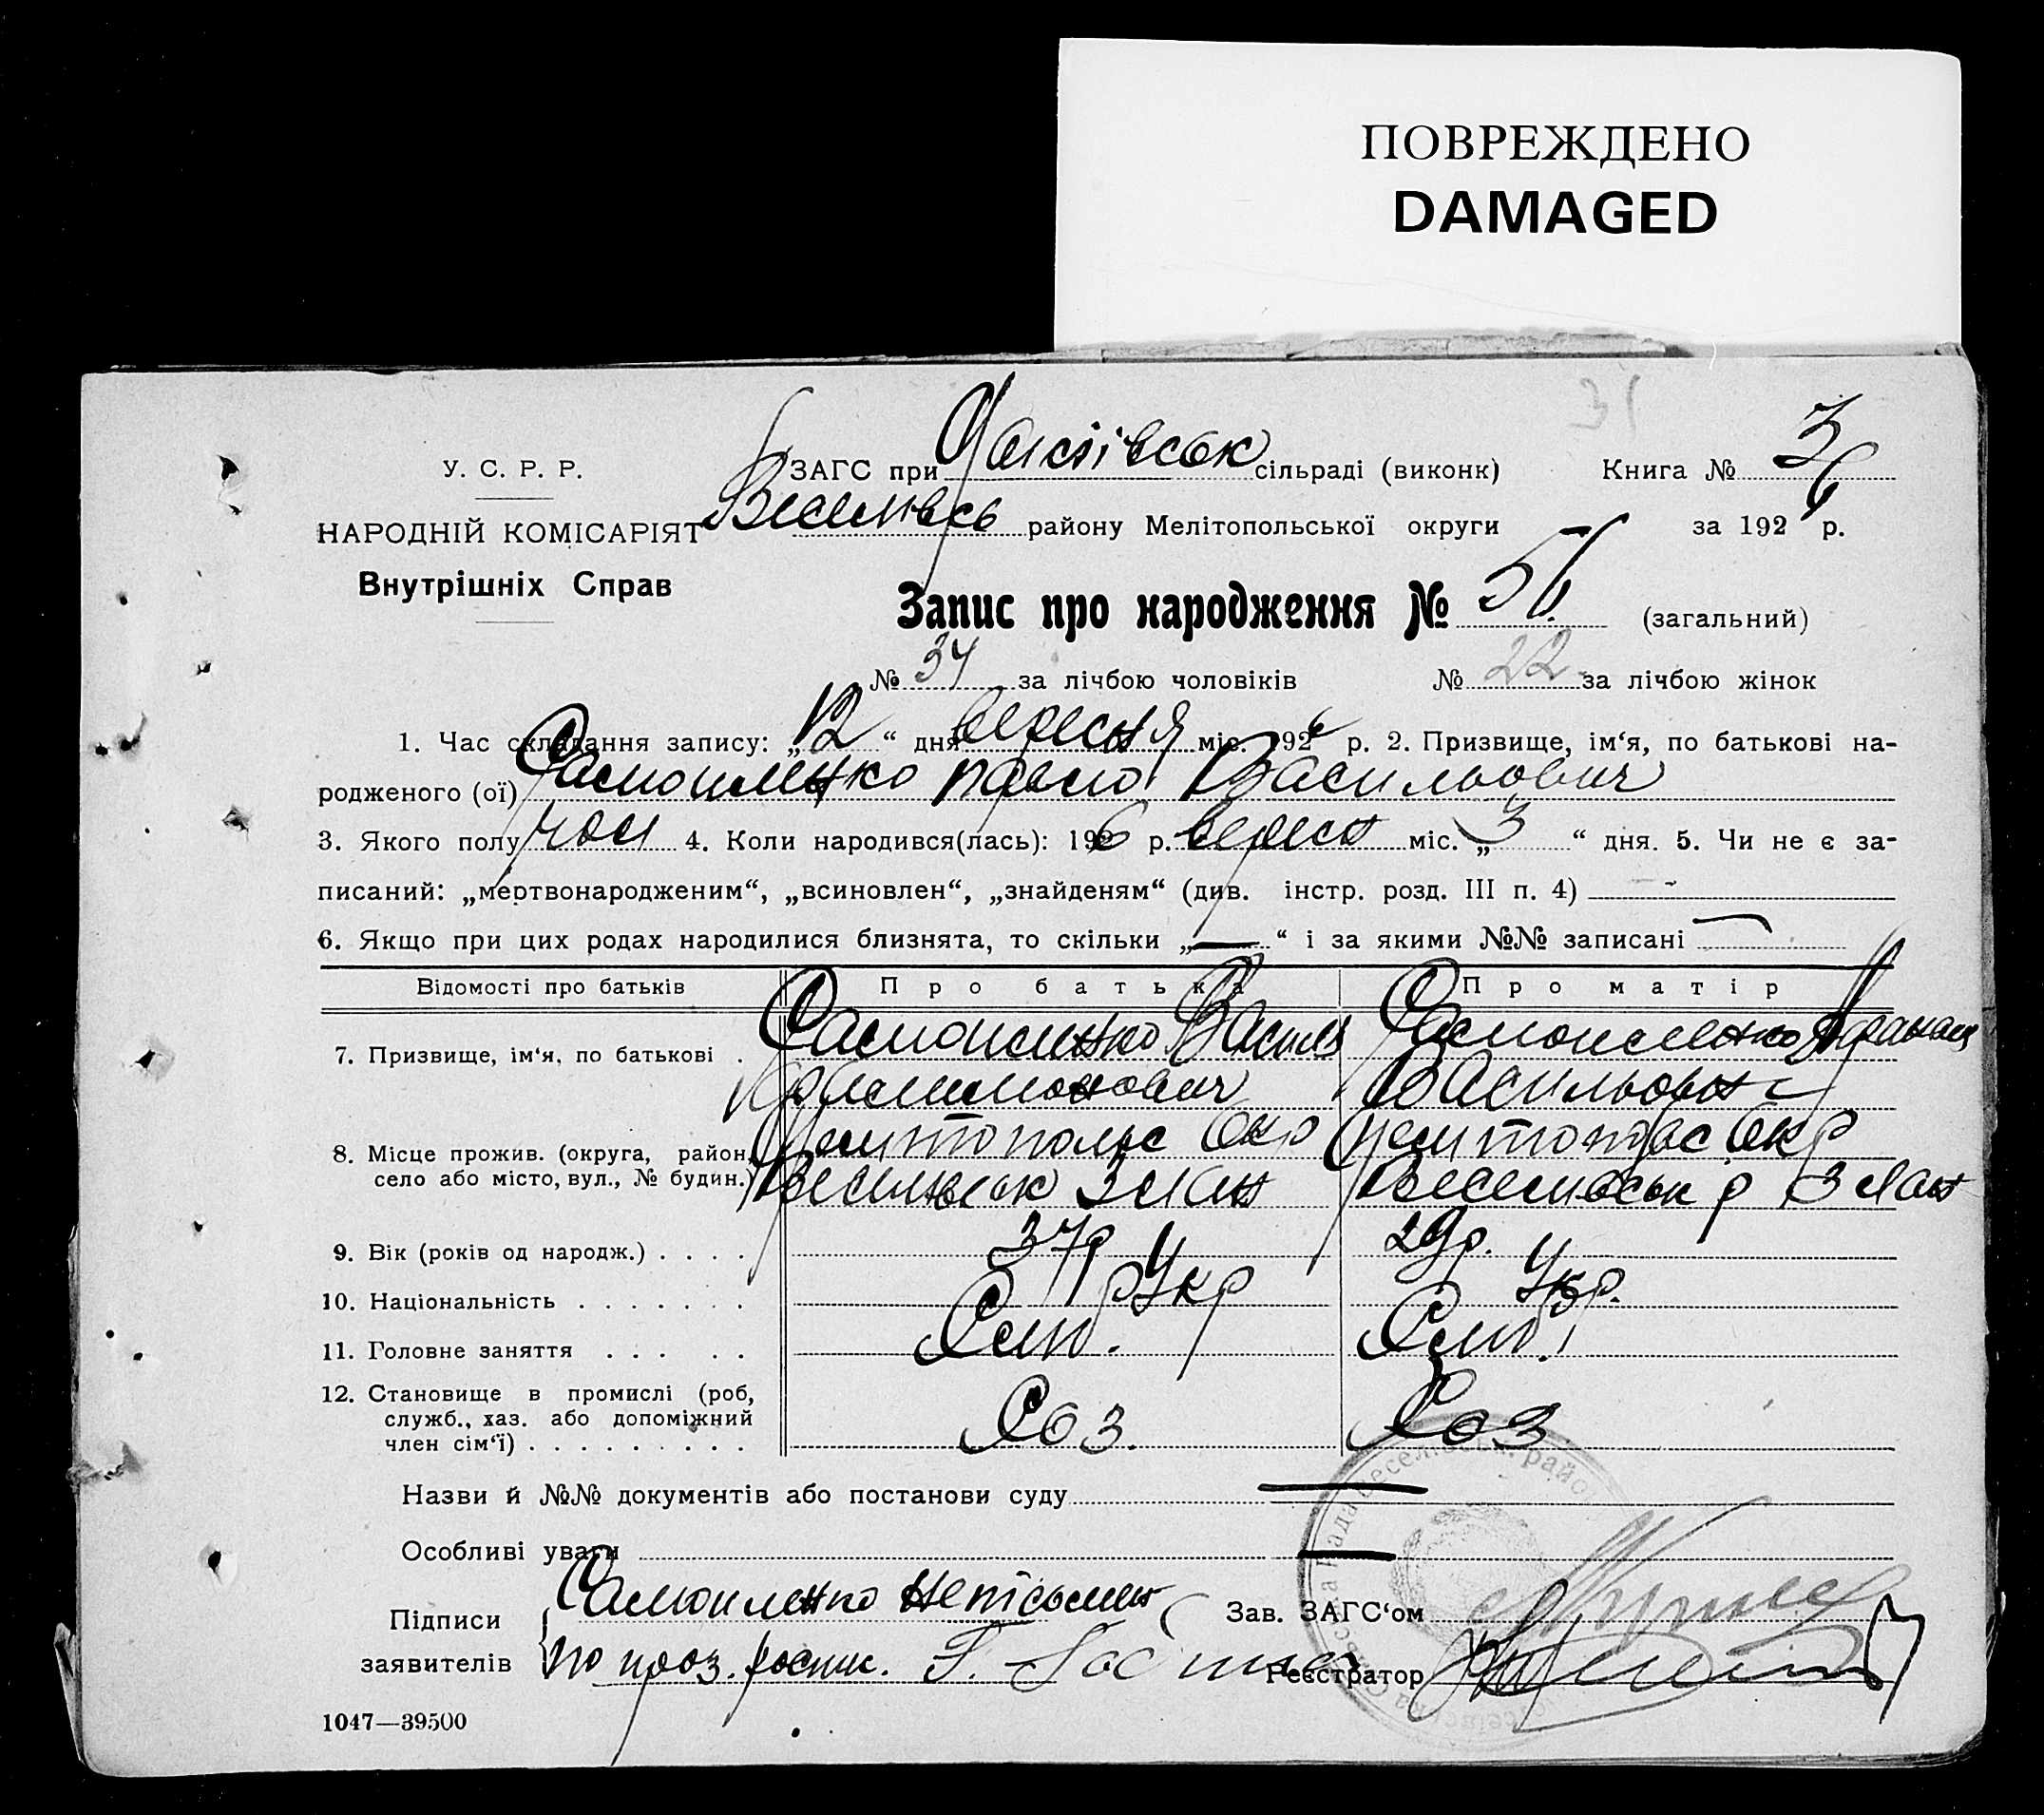 ПОВРЕЖДЕНО
DAMAGED
31
У. С. Р. Р.
ЗАГС при сільраді (виконк) Книга № 3
НАРОДНІЙ КОМІСАРІЯТ
Веселівсь району Мелітопольської округи за 1926 р.
Внутрішніх Справ
Запис про народження № 56 (загальний)
№ 34 за лічбою чоловіків № 22 за лічбою жінок
1. Час складання запису: „12“ дня вересня міс. 1926 р. 2. Призвище, ім‘я, по батькові на-
родженого (ої) Самойленко Павло Васильович
3. Якого полу чол 4. Коли народився(лась): 1926 р. вересн міс. „3“ дня. 5. Чи не є за-
писаний: „мертвонародженим“, „всиновлен“, „знайденям“ (див. інстр. розд. III п. 4)
6. Якщо при цих родах народилися близнята, то скільки „—“ і за якими №№ записані
Відомості про батьків Про батька Про матір
7. Призвище, ім‘я, по батькові . Самойленко Василь Самойленко
Васильовн
8. Місце прожив. (округа, район, Мелитопольс Окр Мелитопольс Окр
село або місто, вул., № будин.) Веселівськ Злан Веселивськ р Злан
9. Вік (років од народж.) . . . . 37р 29р.
10. Національність . . . . . . . Укр Укр.
11. Головне заняття . . . . . Слив. Слив.
12. Становище в промислі (роб,
служб., хаз. або допоміжний
член сім‘ї) . . . . . . . . . Соз. Соз
Назви й №№ документів або постанови суду
Особливі уваги
Підписи Самойленко неписьмен Зав. ЗАГС‘ом
заявителів по проз. роспис. Г. Реєстратор
1047—39500